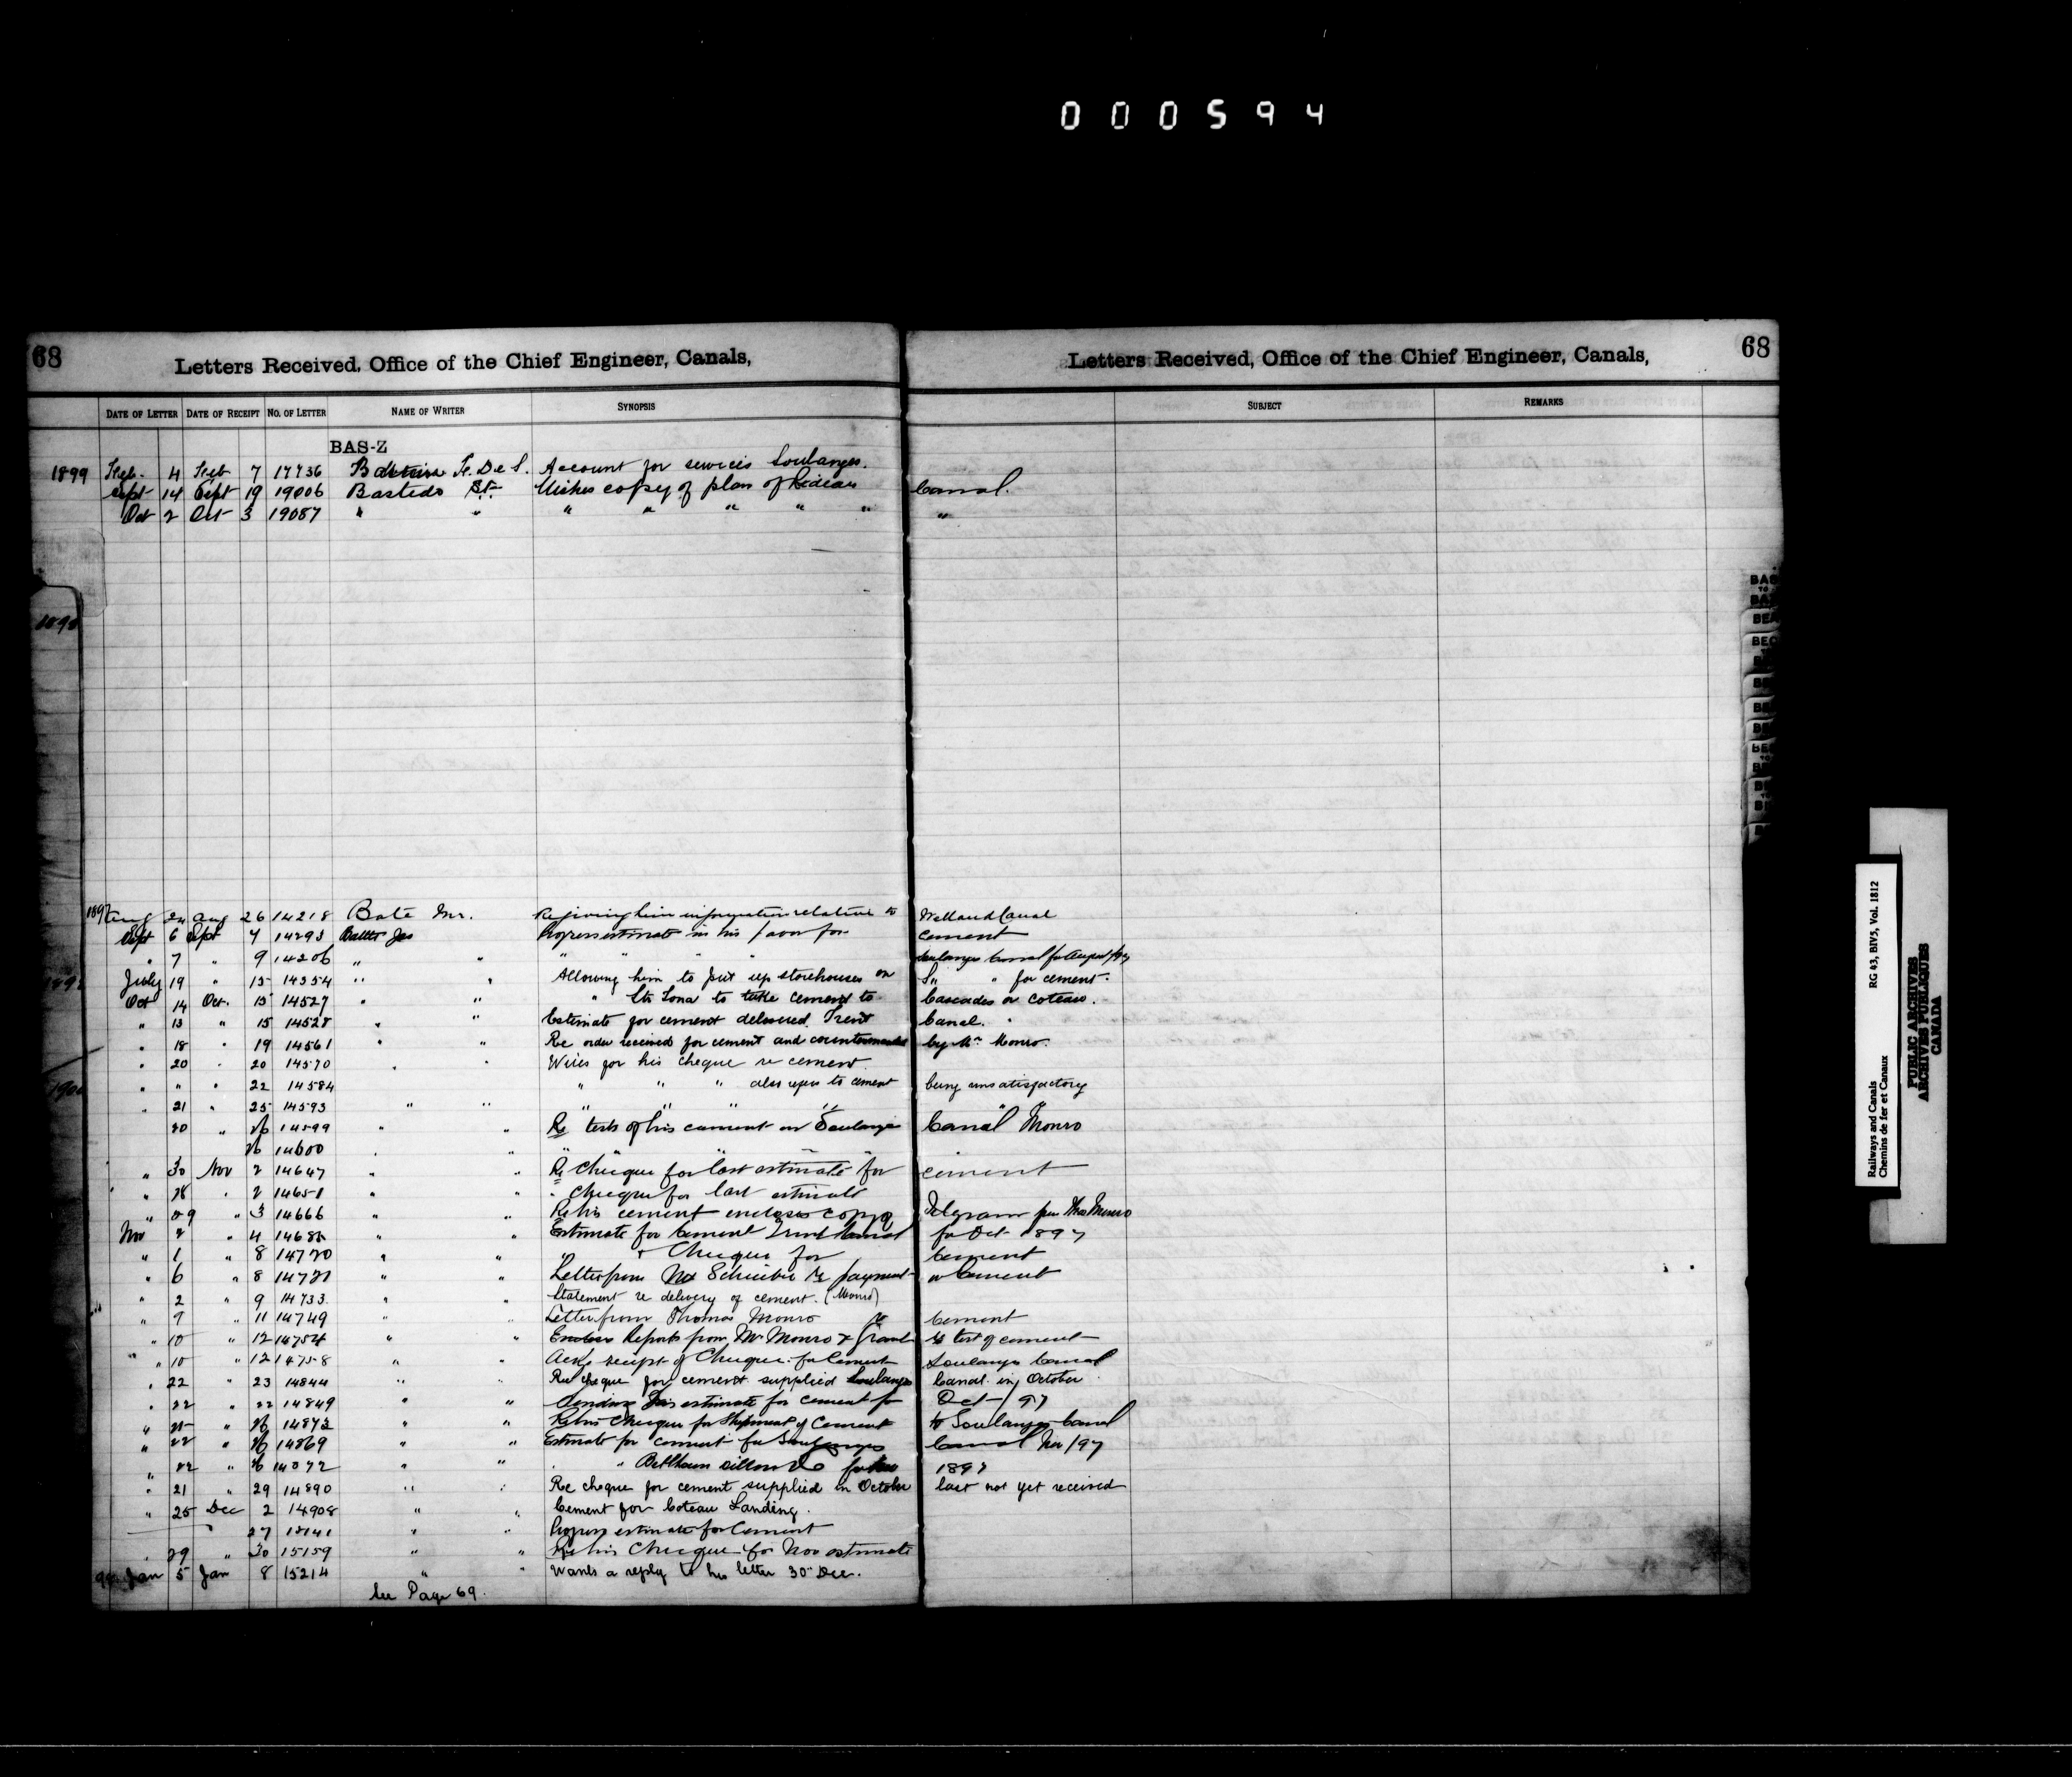 000594
68 Letters Received, Office of the Chief Engineer, Canals,
Letters Received, Office of the Chief Engineer, Canals, 68
DATE OF LETTER DATE OF RECEIPT NO. OF LETTER NAME OF WRITER SYNOPSIS SUBJECT REMARKS
BAS-Z
1899 Feb. 4 Feb 7 17736 F. De S. Account for services Soulanges.
Sept 14 Sept 19 19006 Bastedo St. Wishes copy of plan of Rideau Canal.
Oct 2 Oct 3 19087 " " " " " " " "
1897 Aug 24 Aug 26 14218 Bate Mr. Re giving him information relative to Welland Canal
Sept 6 Sept 7 14293 Battle Jas Progress estimate in his favor for cement
" 7 " 9 14206 " " " " " " Soulanges Canal for August/97
July 19 " 15 14354 " " Allowing him to put up storehouses on " " for cement.
Oct 14 Oct. 15 14527 " " " Str Iona to take cement to Cascades or Coteau.
" 13 " 15 14528 " " Estimate for cement delivered Trent Canal. "
" 18 " 19 14561 " " Re order received for cement and countermanded by Mr Monro.
" 20 " 20 14570 " " Wires for his cheque re cement
" " " 22 14584 " " " also refers to cement being unsatisfactory
" 21 " 25 14593 " " " " " "
20 " 26 14599 " " Re tests of his cement on Soulanges Canal Monro
26 14600 " "
" 30 Nov 2 14647 " " Re cheque for last estimate for cement
" 28 " 2 14651 " " " cheque for last estimate
" 29 " 3 14666 " " Re his cement encloses copy of Telegram from Thos Munro
Nov 2 " 4 14682 " " Estimate for Cement Trent Canal for Oct 1897
" 1 " 8 14720 " " " Cheque for Cement
" 6 " 8 14721 " " Letter from Mr Schreiber re payment " Cement
" 2 " 9 14733 " " Statement re delivery of cement. (Monro)
" 9 " 11 14749 " " Letter from Thomas Monro re Cement
" 10 " 12 14754 " " Encloses Reports from Mr Monro & Grant re test of cement
" 10 " 12 14758 " " Ackg receipt of Cheque for Cement Soulanges Canal
" 22 " 23 14844 " " Re cheque for cement supplied Soulanges Canal in October
" 22 " 22 14849 " " Sending his estimate for cement for Oct / 97
" 25 " 26 14873 " " Re his Cheque for Shipment of Cement to Soulanges Canal
" 22 " 26 14869 " " Estimate for cement for Soulanges Canal Nov / 97
" 22 " 26 14872 " " " 1897
" 21 " 29 14890 " " Re cheque for cement supplied in October last not yet received
" 25 Dec 2 14908 " " Cement for Coteau Landing.
" 27 15141 " " Progress estimate for Cement
" 29 " 30 15159 " " Re his Cheque for Nov estimate
98 Jan 5 Jan 8 15214 " " Wants a reply to his letter 30th Dec.
See Page 69.
Railways and Canals RG 43, BIV5, Vol. 1812
Chemins de fer et Canaux
PUBLIC ARCHIVES
ARCHIVES PUBLIQUES
CANADA